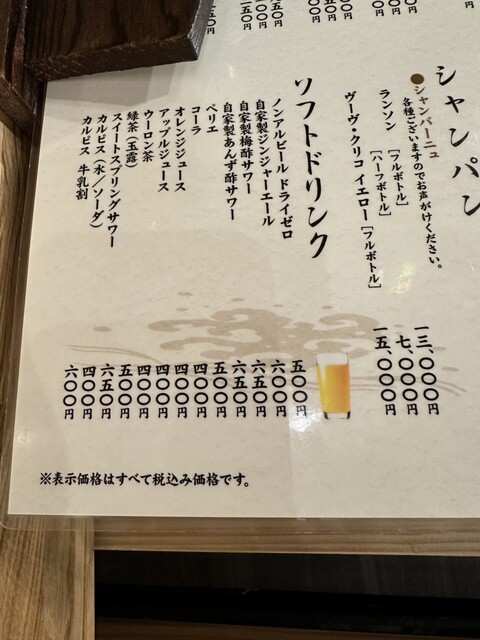 シャンパン
●シャンパーニュ
各種ございますのでお声がけください。
ランソン ［フルボトル］ 一三、〇〇〇円
［ハーフボトル］ 七、〇〇〇円
ヴーヴ・クリコ イエロー［フルボトル］ 一五、〇〇〇円
ソフトドリンク
ノンアルビール ドライゼロ 五〇〇円
自家製ジンジャーエール 六〇〇円
自家製梅酢サワー 六五〇円
自家製あんず酢サワー 六五〇円
ペリエ 五〇〇円
コーラ 四〇〇円
オレンジジュース 四〇〇円
アップルジュース 四〇〇円
ウーロン茶 四〇〇円
緑茶（玉露） 五〇〇円
スイートスプリングサワー 六五〇円
カルピス（水／ソーダ） 四〇〇円
カルピス 牛乳割 六〇〇円
※表示価格はすべて税込み価格です。